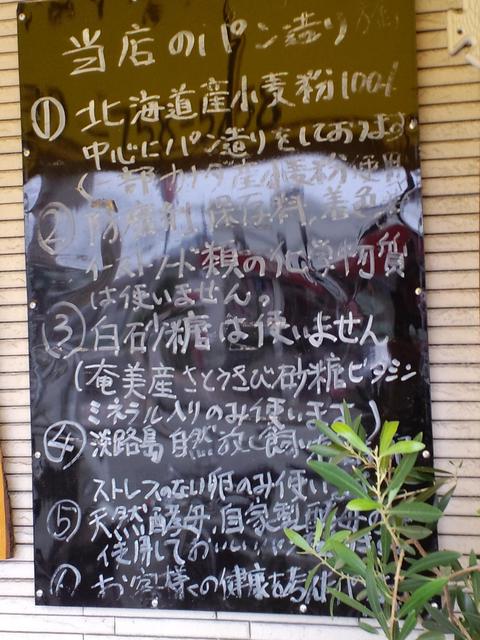 当店のパン造り
① 北海道産小麦粉100%
中心にパン造りをしております
(一部カナダ産小麦粉使用
② 防腐剤、保存料、着色
イーストフード類の化学物質
は使いません。
③ 白砂糖は使いません
(奄美産さとうきび砂糖ビタミン
ミネラル入りのみ使います)
④ 淡路島自然放し飼い
ストレスのない卵のみ使い
⑤ 天然酵母、自家製酵母
使用しておいしいパン
お客様の健康を考え